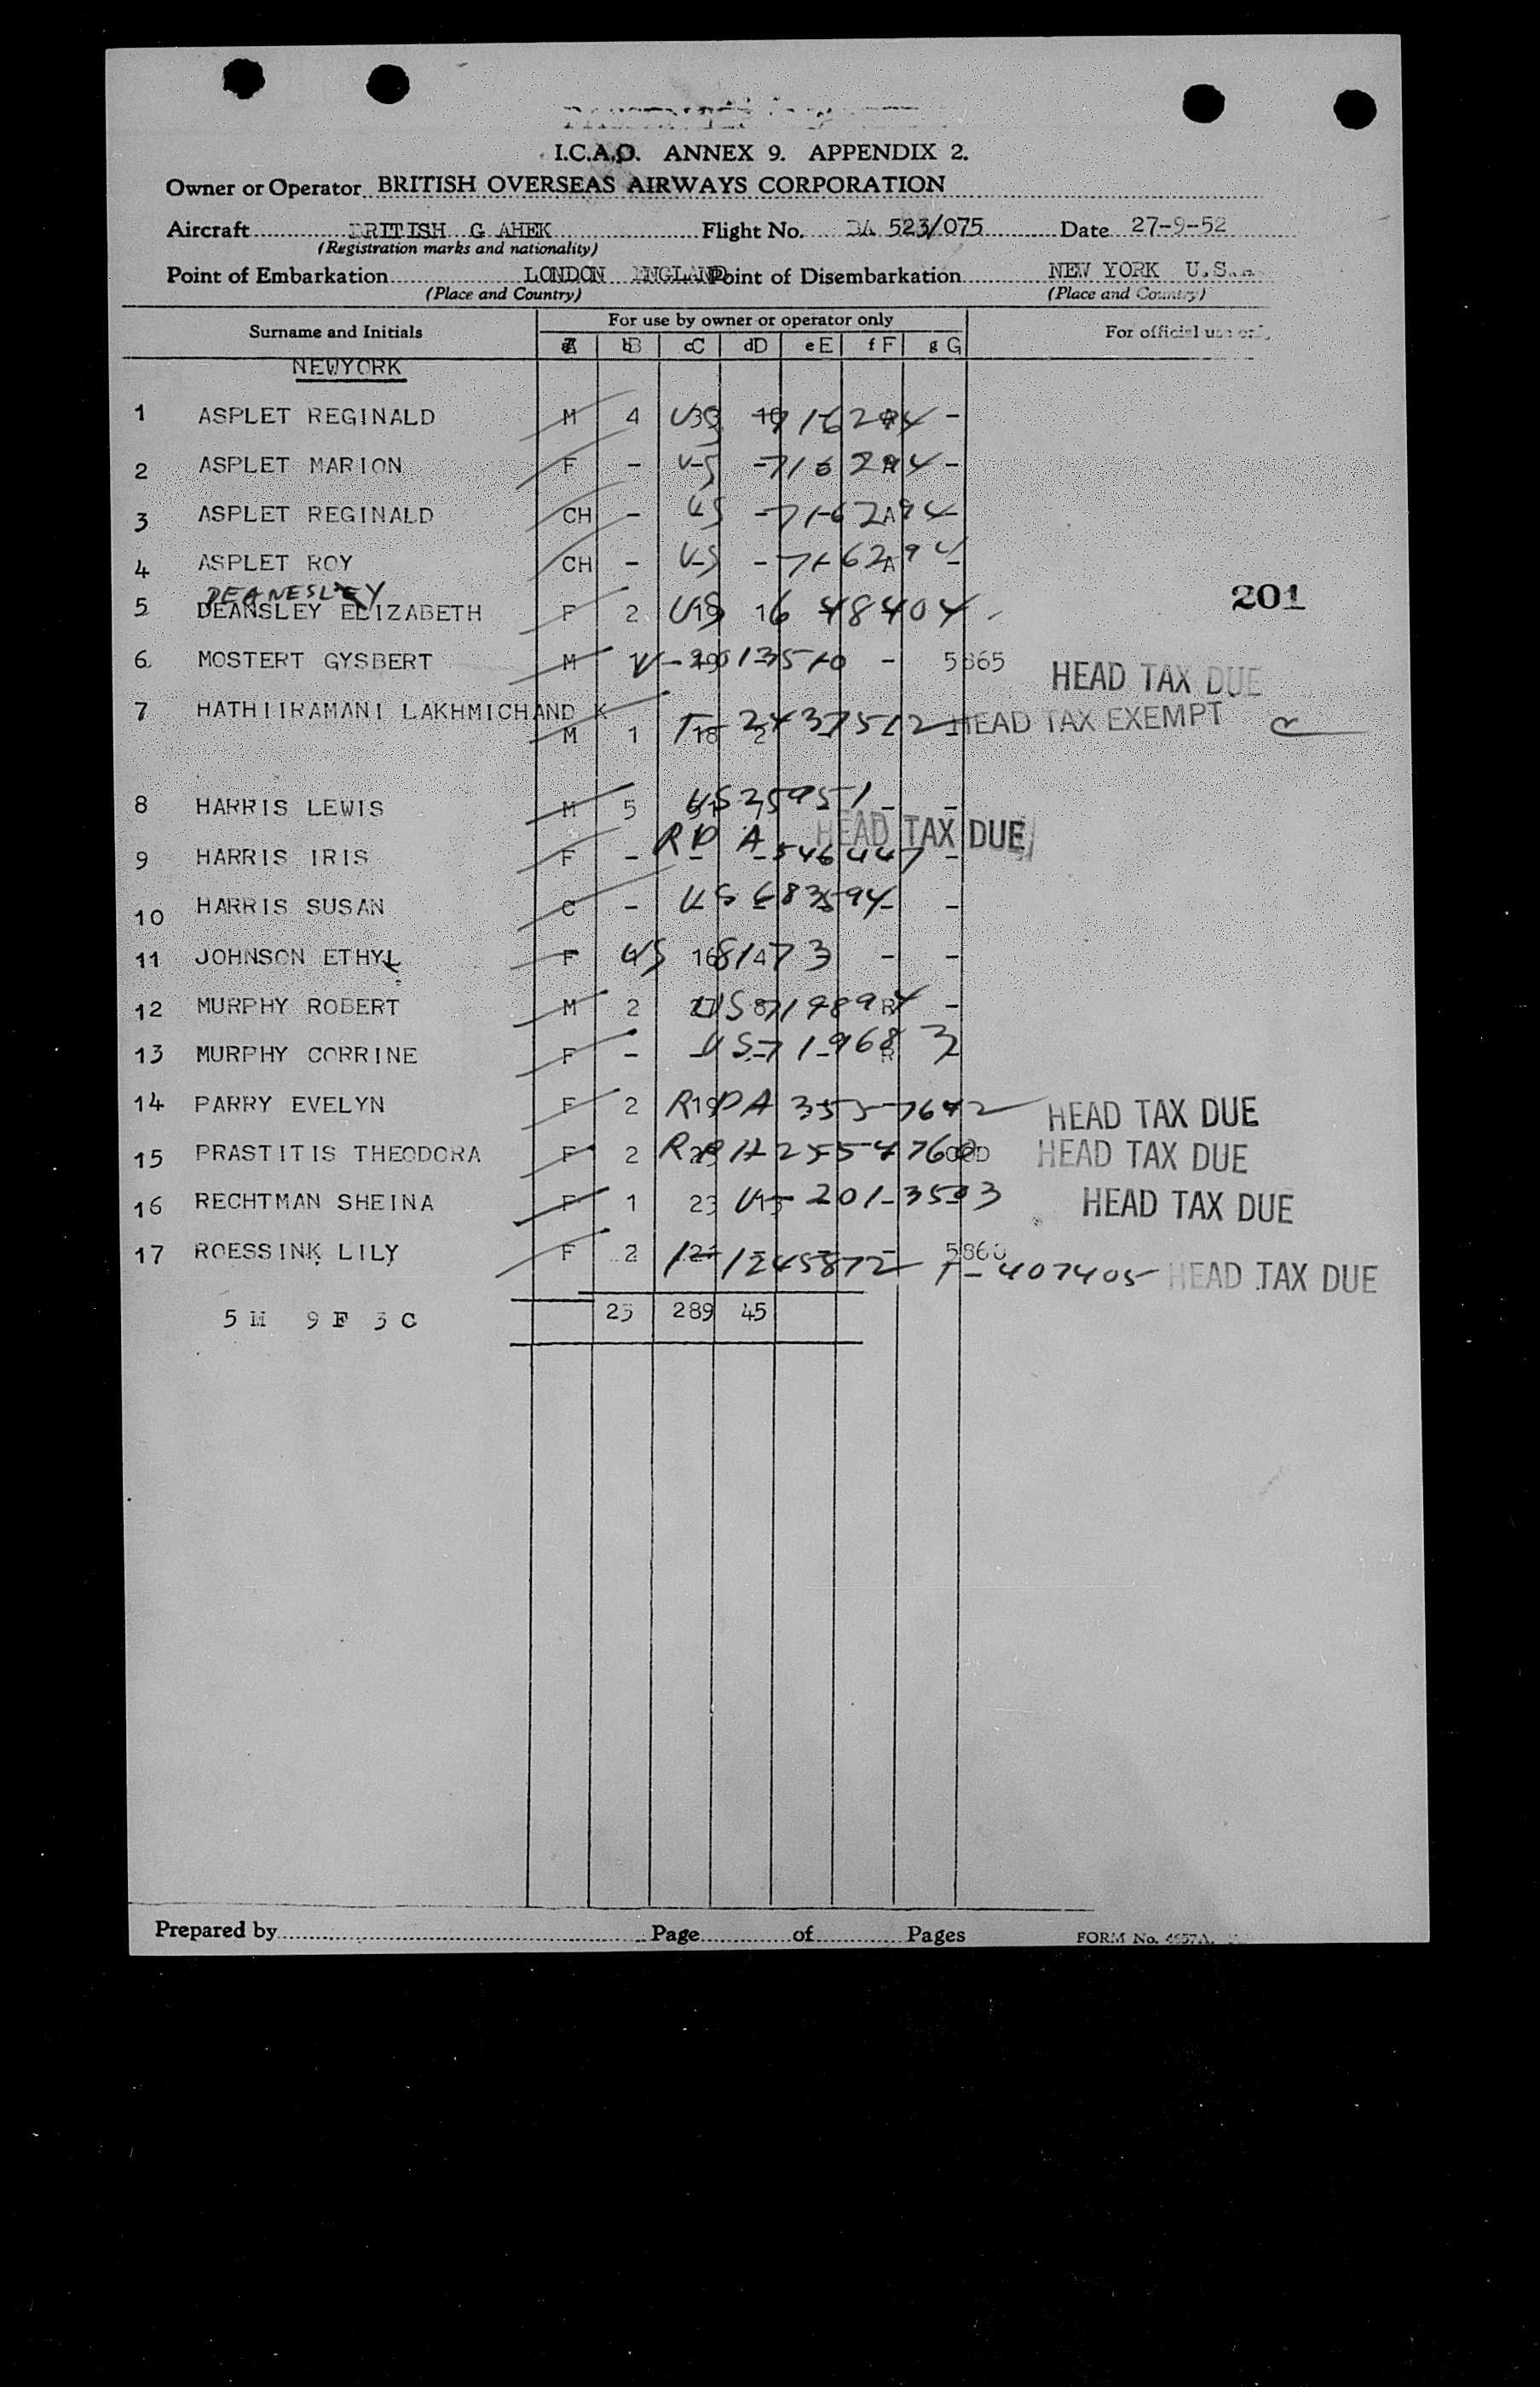 I.C.A.O. ANNEX 9. APPENDIX 2.
Owner or Operator BRITISH OVERSEAS AIRWAYS CORPORATION
Aircraft BRITISH G AHEK Flight No. BA 523/075 Date 27-9-52
(Registration marks and nationality)
Point of Embarkation LONDON ENGLAND Point of Disembarkation NEW YORK U.S.A.
(Place and Country) (Place and Country)
Surname and Initials For use by owner or operator only For official use only
A B C D E F G
NEWYORK
1 ASPLET REGINALD M 4 US 716294 -
2 ASPLET MARION F - US 716294 -
3 ASPLET REGINALD CH - US 716294 -
4 ASPLET ROY CH - US 716294 -
DEANESLEY
5 DEANSLEY ELIZABETH F 2 US 19 16 48404
201
6 MOSTERT GYSBERT M V-2013510 - 5865 HEAD TAX DUE
7 HATHIIRAMANI LAKHMICHAND K
M 1 18 2 T-2437512 HEAD TAX EXEMPT
8 HARRIS LEWIS M 5 US 25951 - -
HEAD TAX DUE
9 HARRIS IRIS F - RPA 546447 -
10 HARRIS SUSAN C - US 683594 -
11 JOHNSON ETHYL F US 16 81473 - -
12 MURPHY ROBERT M 2 US 719894 R -
13 MURPHY CORRINE F - US 719683 R
14 PARRY EVELYN F 2 19 RPA 3557642 HEAD TAX DUE
15 PRASTITIS THEODORA F 2 RPA 2554760 HEAD TAX DUE
16 RECHTMAN SHEINA F 1 23 V-201-3503 HEAD TAX DUE
17 ROESSINK LILY F 2 1-1245872 5860 T-407405 HEAD TAX DUE
5 M 9 F 3 C 23 289 45
Prepared by Page of Pages FORM No. 4657A.